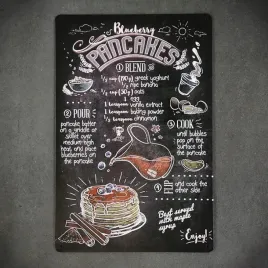 Blueberry
PANCAKES
1 BLEND
1/2 cup (140g) greek yoghurt
1/2 ripe banana
1/2 cup (50g) oats
1 egg
1 teaspoon vanilla extract
1 teaspoon baking powder
1/2 teaspoon cinnamon
2 POUR
pancake batter
on a griddle or
skillet over
medium-high
heat, and place
blueberries on
the pancake
3 COOK
until bubbles
pop on the
surface of the
pancake
4
and cook the
other side
Best served
with maple
syrup
Enjoy!